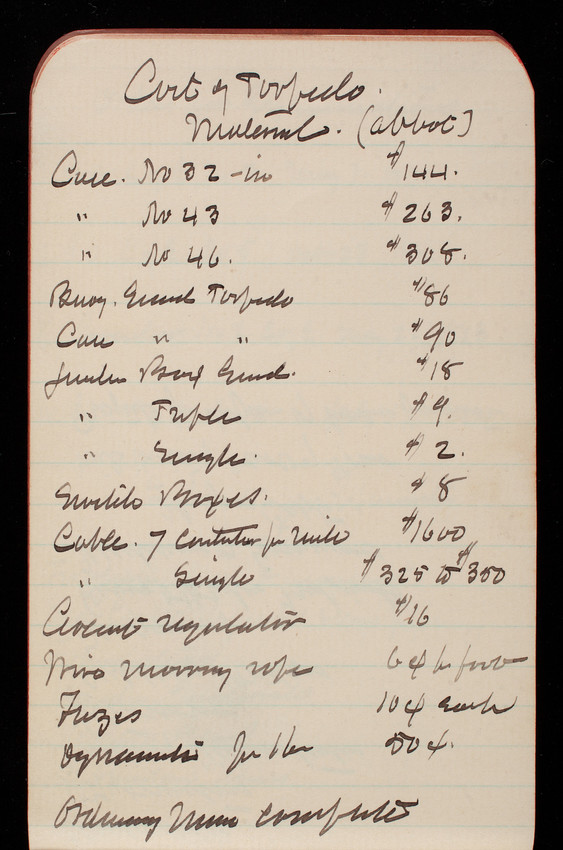 Cost of Torpedo.
Material. (abbot)
Case. No 32-in $144.
" No 43 $263.
" No 46. $308.
Buoy. Grand Torpedo $86
Case " " $90
Junction Box Grand. $18
" Triple $9.
" Single. $2.
Boxes. $8
Cable. 7 Conductor per mile $1600
" Single $325 to $350
Circuit regulator $16
Wire mooring rope 6¢ per foot
Fuzes 10¢ each
Dynamite per lb 50¢.
Ordinary mine complete